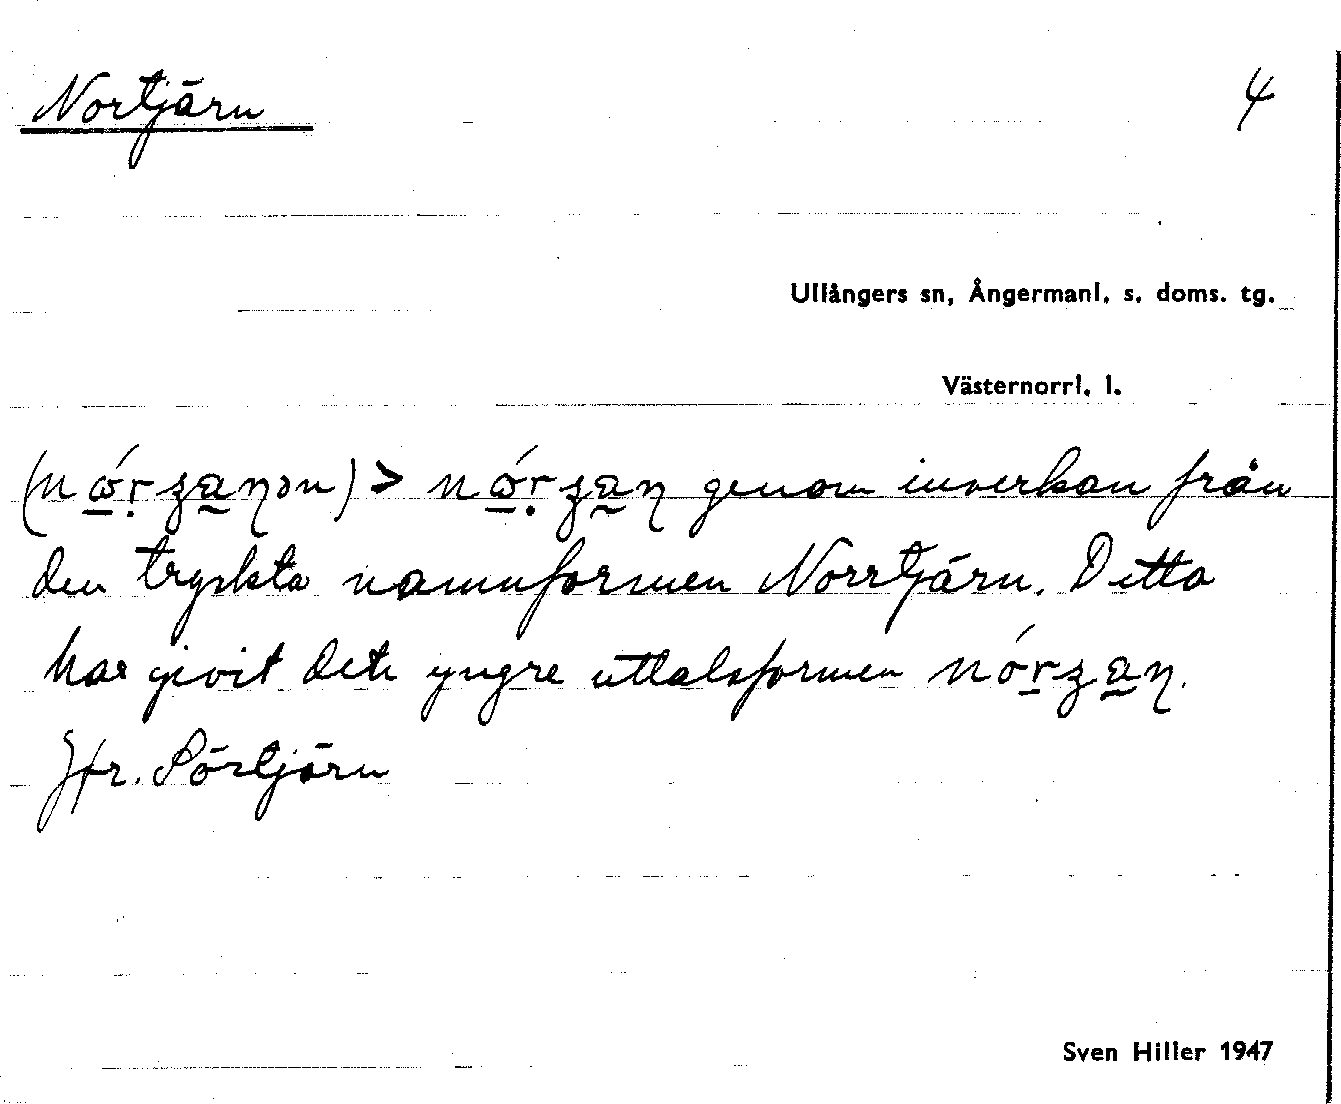 Nortjärn
4
Ullångers sn, Ångermanl. s. doms. tg.
Västernorrl. l.
genom inverkan från
den tryckta namnformen Norrtjärn. Detta
har givit det yngre uttalsformen
Jfr. Sörtjärn
Sven Hiller 1947